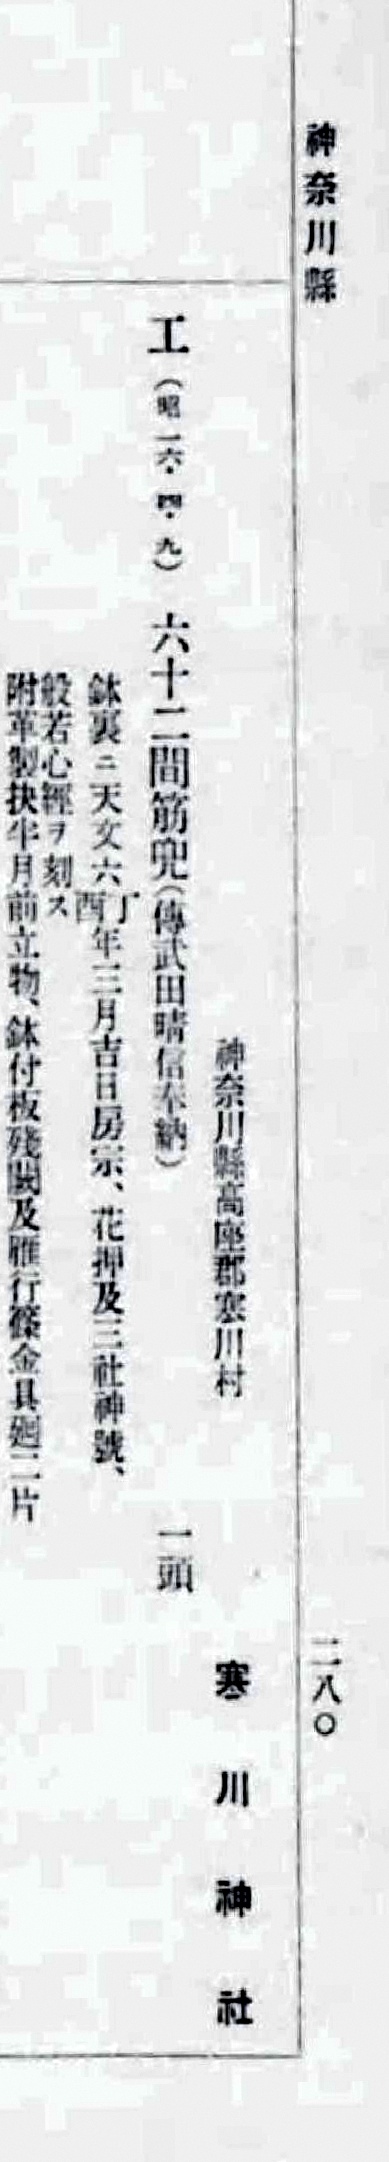 神奈川縣
二八〇
神奈川縣高座郡寒川村
寒川神社
工(昭一六・四・九) 六十二間筋兜(傳武田晴信奉納) 一頭
鉢裏ニ天文六丁酉年三月吉日房宗、花押及三社神號、
般若心經ヲ刻ス
附革製抉半月前立物、鉢付板殘闕及雁行篠金具廻二片